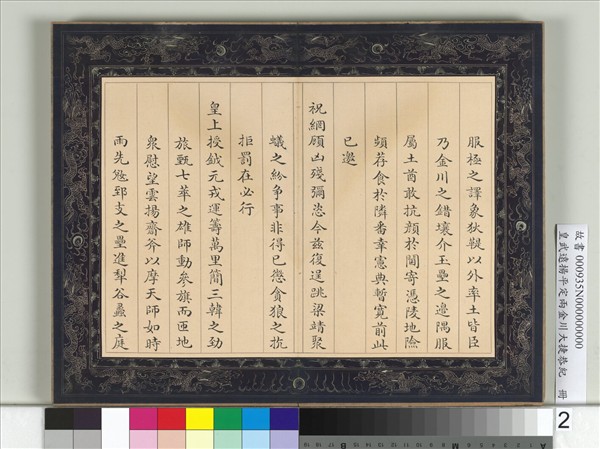 服極之譯象狄鞮以外率土皆臣
乃金川之錯壤介玉壘之邊隅服
屬土酋敢抗顏於閫寄憑陵地險
頻荐食於隣番幸憲典暫寬前此
已邀
祝網顧凶殘彌恣今茲復逞跳梁靖聚
蟻之紛爭事非得已懲貪狼之抗
拒罰在必行
皇上授鉞元戎運籌萬里簡三韓之勁
旅甄七萃之雄師動參旗而匝地
衆慰望雲揚齋斧以摩天師如時
雨先郅支之壘進犁谷蠡之庭
故書 000935N000000000
皇武遠揚平定兩金川大捷恭紀 冊
2